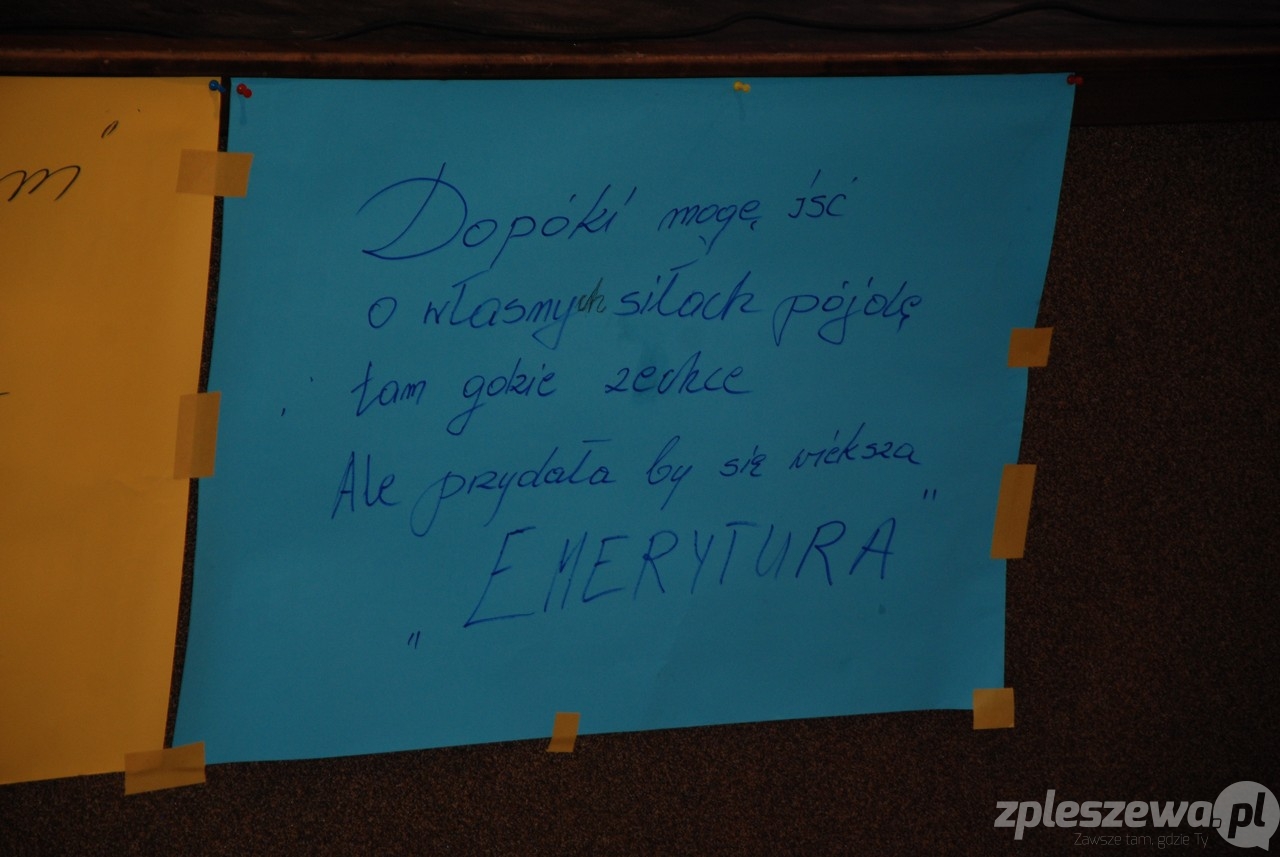 m"
Dopóki mogę iść
o własnych siłach pójdę
tam gdzie zechce
Ale przydała by się większa
„EMERYTURA"
zpleszewa.pl
Zawsze tam, gdzie Ty